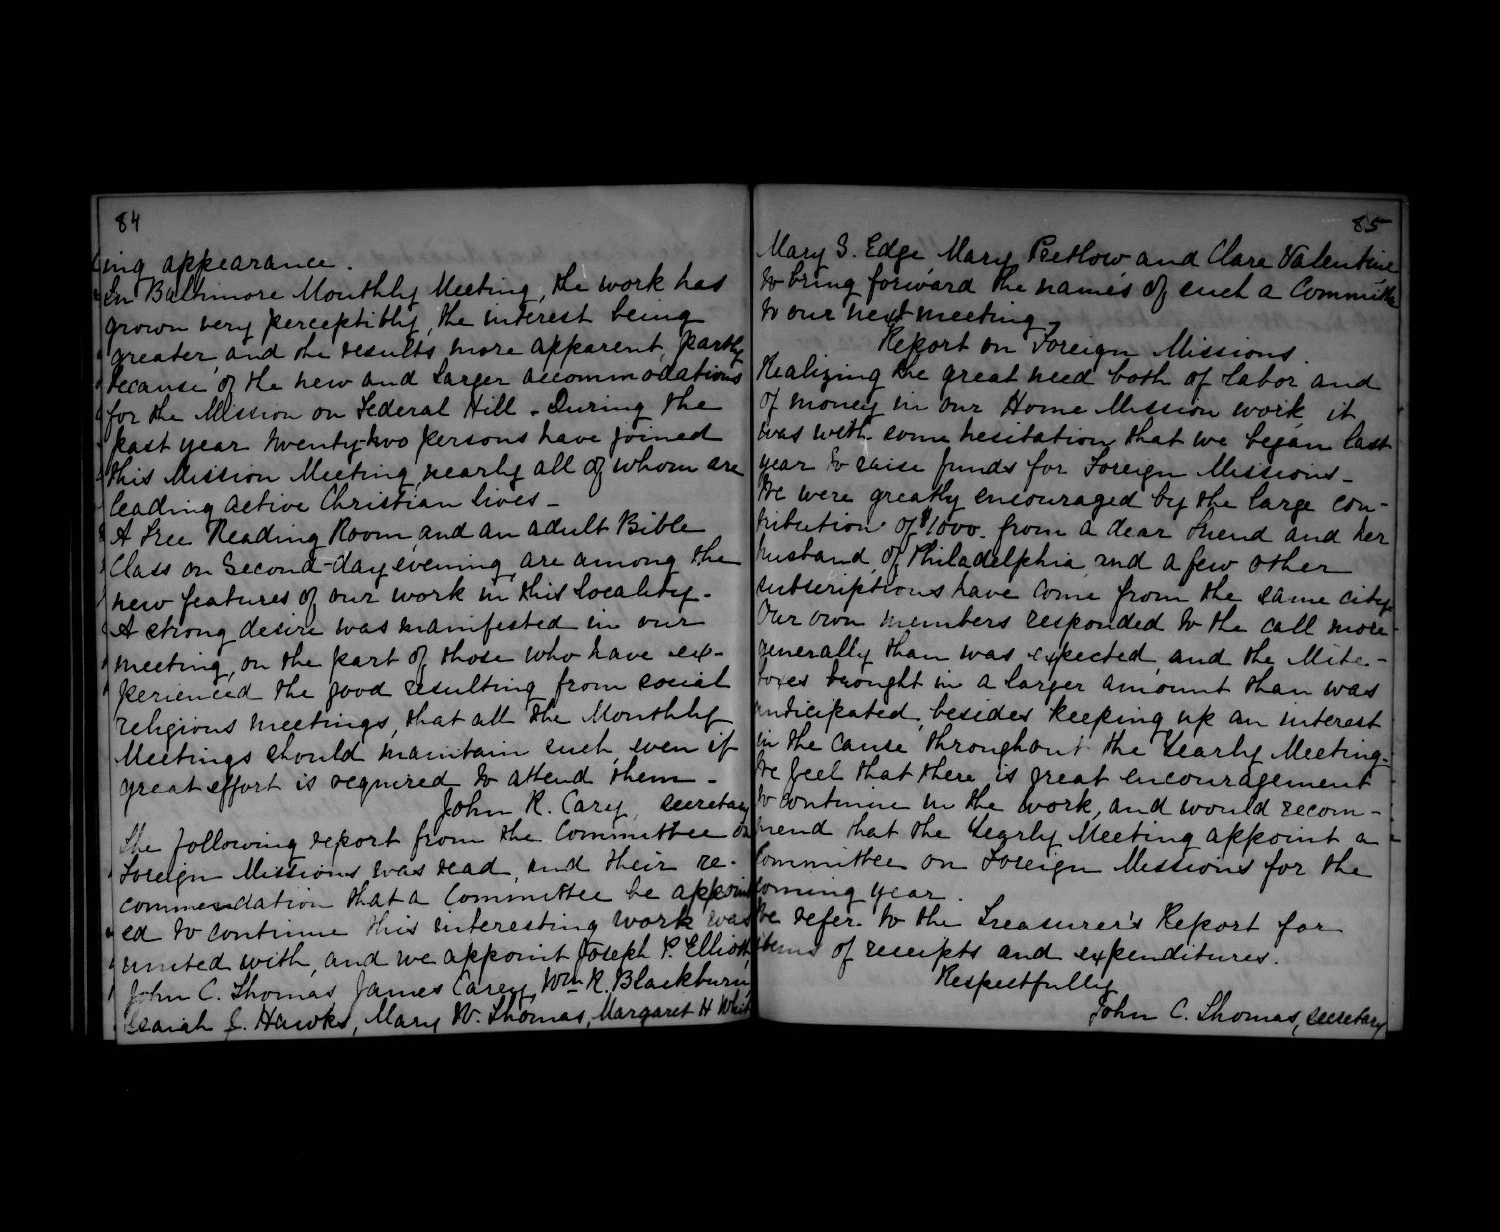 84
ing appearance.
In Baltimore Monthly Meeting, the work has
grown very perceptibly, the interest being
greater, and the results more apparent, partly
because of the new and larger accommodations
for the Mission on Federal Hill. During the
past year twenty-two persons have joined
this Mission Meeting, nearly all of whom are
leading active Christian lives -
A Free Reading Room, and an adult Bible
Class on Second-day evening, are among the
new features of our work in this locality.
A strong desire was manifested in our
meeting, on the part of those who have ex-
perienced the good resulting from social
religious meetings, that all the Monthly
Meetings should maintain such, even if
great effort is required to attend them -
John R. Cary, secretary
The following report from the Committee on
Foreign Missions was read, and their re-
commendation that a Committee be appoint
ed to continue this interesting work was
united with, and we appoint Joseph P. Elliott,
John C. Thomas, James Carey, Wm R. Blackburn,
Isaiah J. Hawks, Mary W. Thomas, Margaret H
85
Mary S. Edge, Mary Pretlow, and Clare Valentine
to bring forward the names of such a Committee
to our next meeting.
Report on Foreign Missions.
Realizing the great need both of labor and
of money in our Home Mission work, it
was with some hesitation that we began last
year to raise funds for Foreign Missions -
We were greatly encouraged by the large con-
tribution of $1000. from a dear friend and her
husband, of Philadelphia, and a few other
subscriptions have come from the same city.
Our own members responded to the call more
generally than was expected, and the Mite-
boxes brought in a larger amount than was
anticipated, besides keeping up an interest
in the cause throughout the Yearly Meeting.
We feel that there is great encouragement
to continue in the work, and would recom-
mend that the Yearly Meeting appoint a
Committee on Foreign Missions for the
coming year.
We refer to the Treasurer's Report for
items of receipts and expenditures.
Respectfully
John C. Thomas, secretary